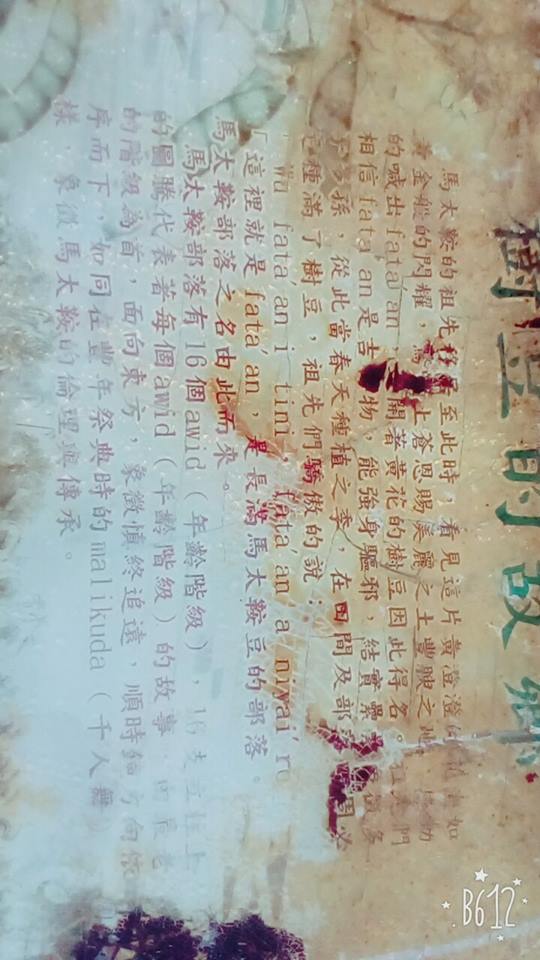 樹豆的故鄉
馬太鞍的祖先 至此時，看見這片黃澄澄 如
黃金般的閃耀， 上蒼恩賜美麗之土豐腴之
的喊出fata'an 開著黃花的樹豆因此得名。 們
相信fata'an是 物，能強身驅邪，結實 多
子 孫，從此當春天種植之季，在田間及部
種滿了樹豆，祖先們驕傲的說：
fata'an i tini, fata'an a niyai'
「這裡就是fata'an，是長滿馬太鞍豆的部落。
馬太鞍部落之名由此而來。
馬太鞍部落有16個awid（年齡階級），16
的圖騰代表著每個awid（年齡階級）的故事
的階級為首，面向東方，象徵慎終追遠，順時 方向依
序而下，如同在豐年祭典時的malikuda（千人舞）
樣，象徵馬太鞍的倫理與傳承。
B612